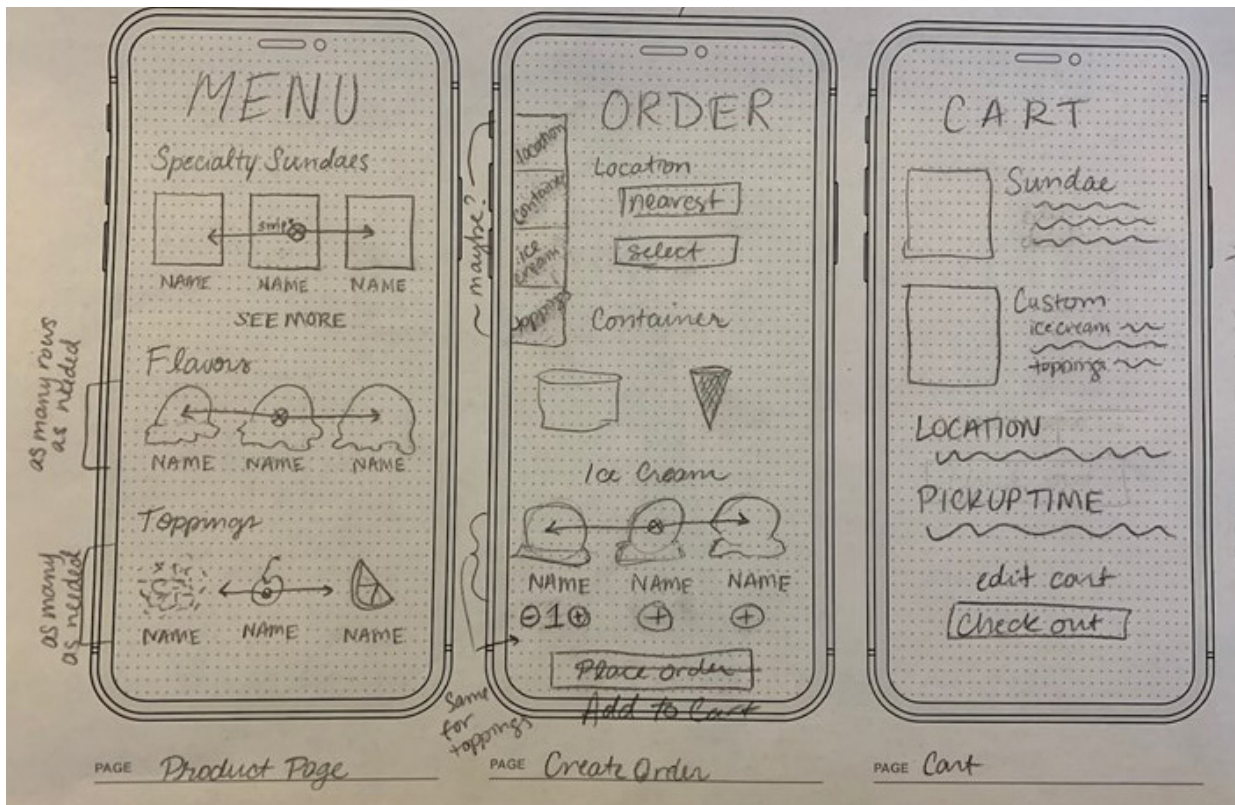 MENU
Specialty Sundaes
swipe
NAME NAME NAME
SEE MORE
Flavors
as many rows
as needed
NAME NAME NAME
Toppings
as many
as needed
NAME NAME NAME
PAGE Product Page
ORDER
maybe?
location
Container
ice
cream
toppings
Location
nearest
select
Container
Ice Cream
NAME NAME NAME
1
Place order
Add to Cart
Same
for
toppings
PAGE Create Order
CART
Sundae
Custom
ice cream
toppings
LOCATION
PICKUP TIME
edit cart
Check out
PAGE Cart